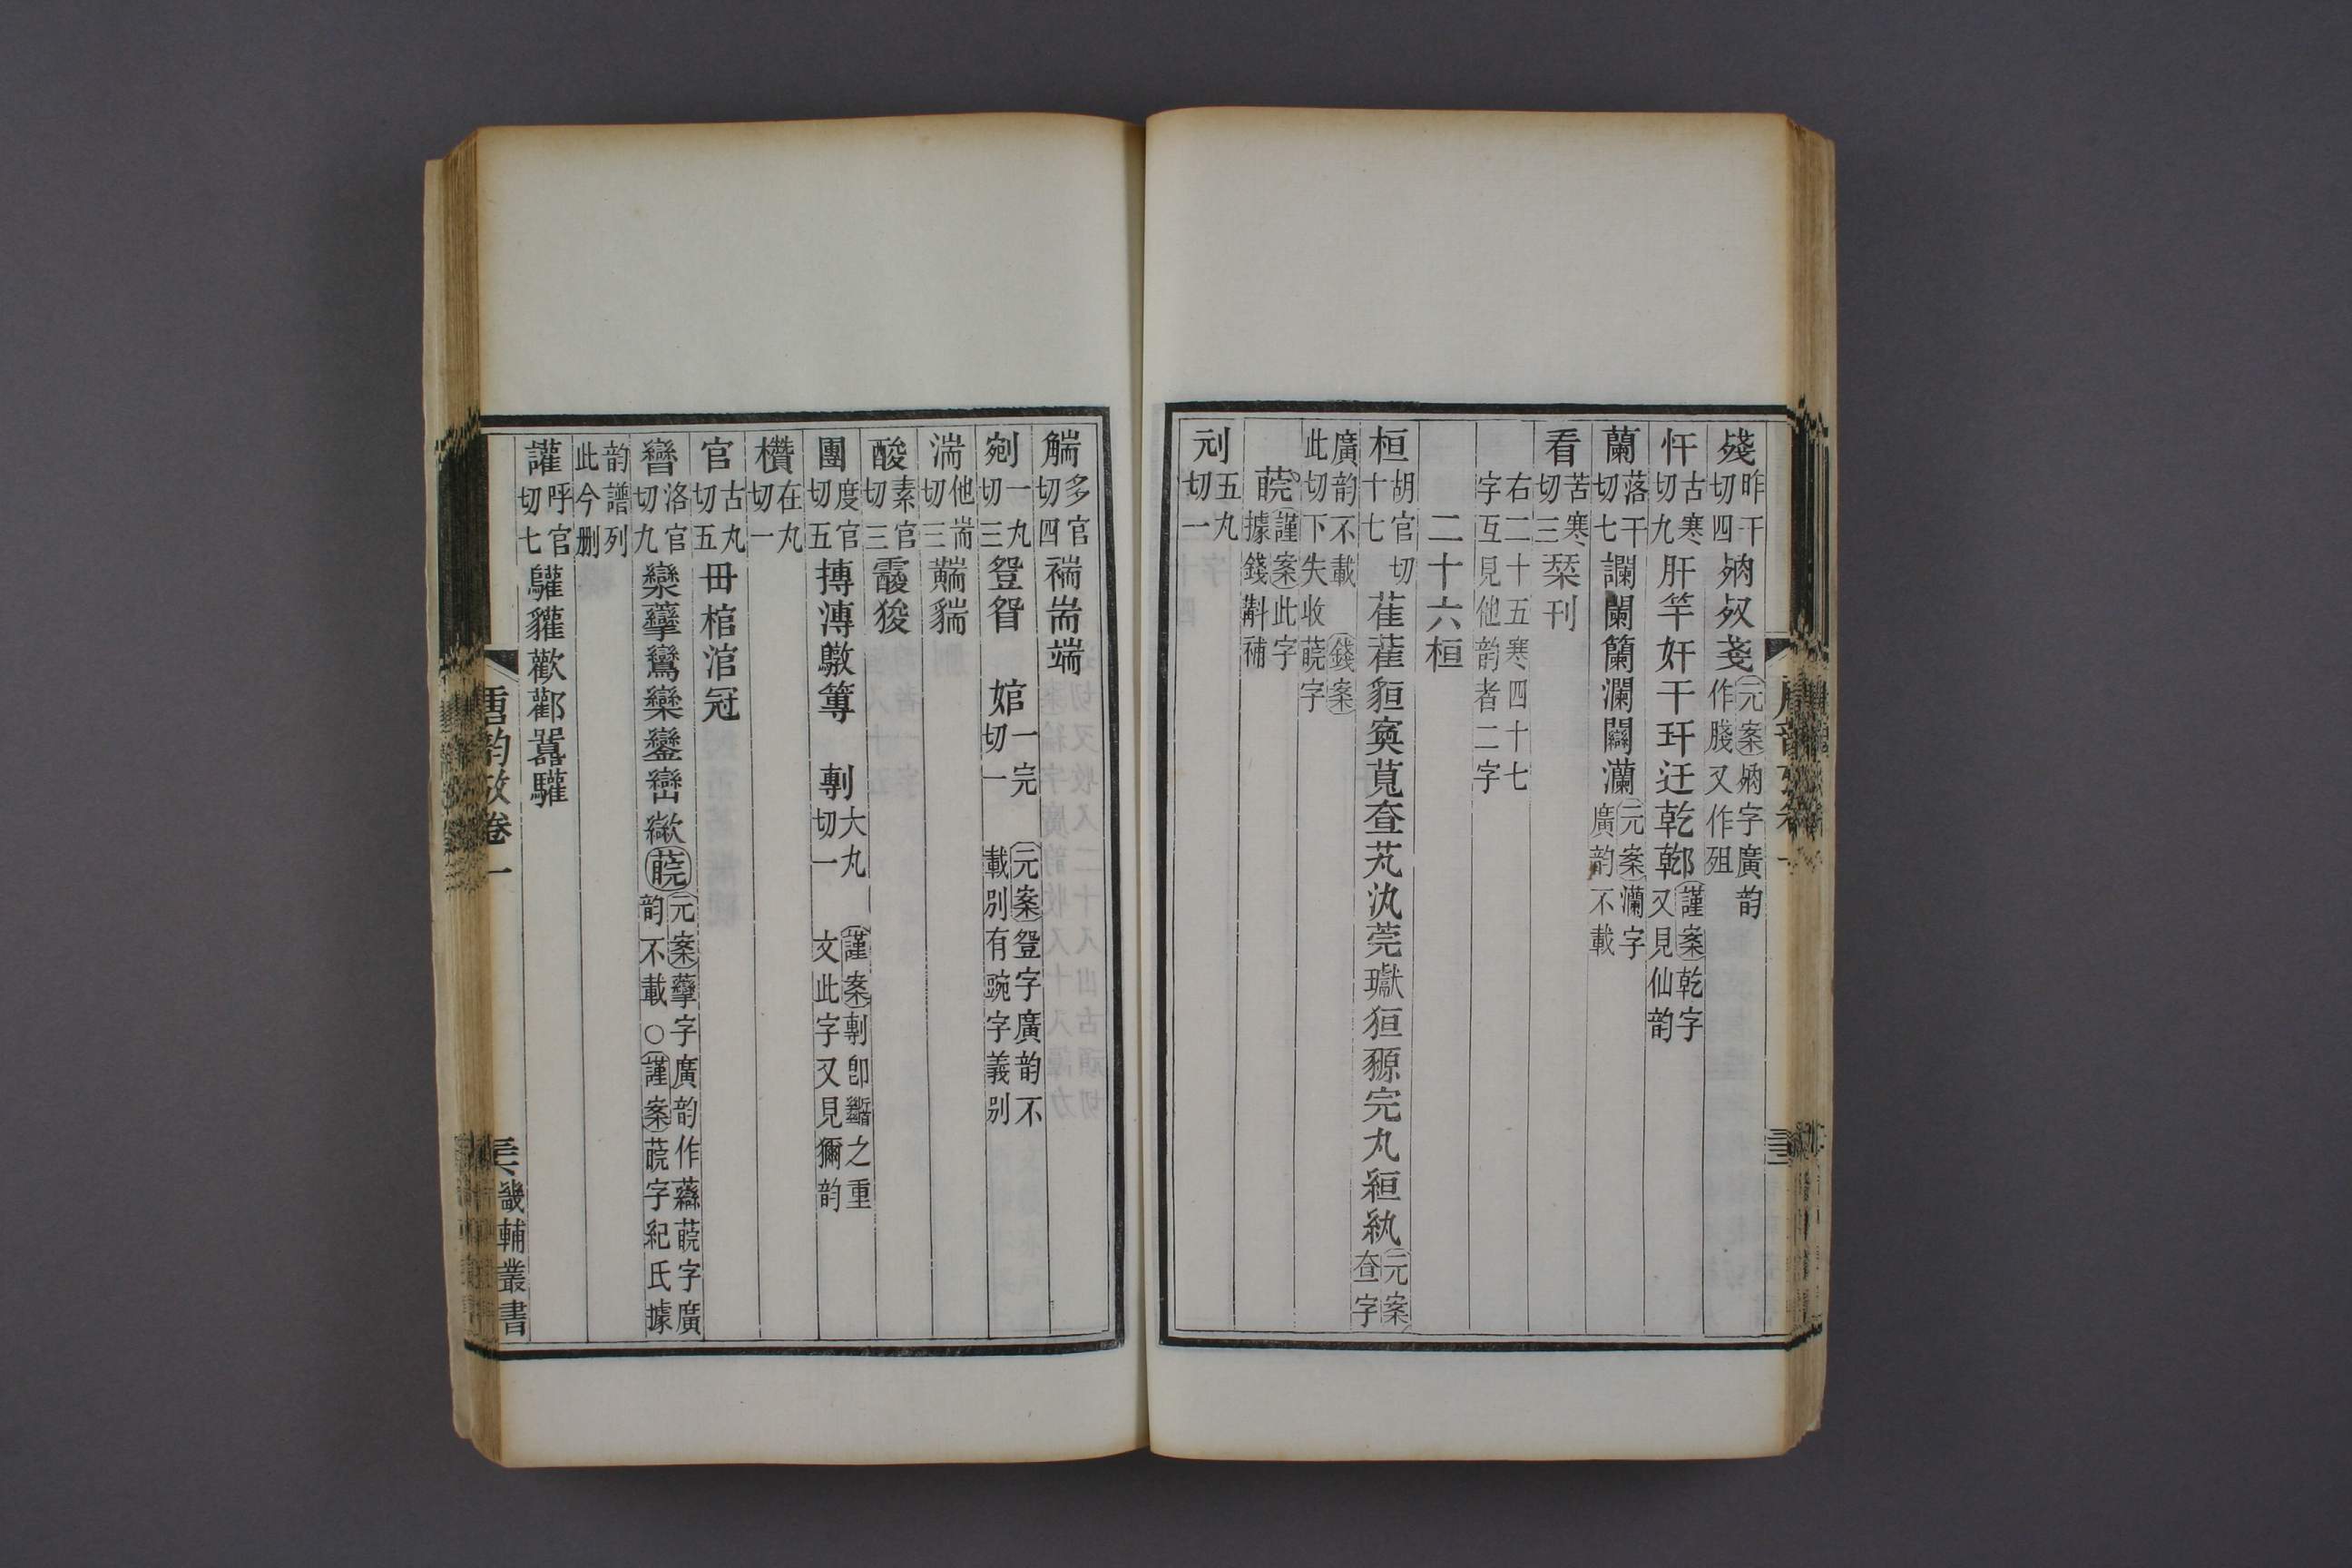 殘昨干切四 𣧻𣦼㦮元案𣧻字廣韵作䏼又作殂
忓古寒切九 肝竿奸干玕迀乾鄿謹案乾字又見仙韵
蘭落干切七 讕闌籣瀾闗灡元案灡字廣韵不載
看苦寒切三 栞刊
右二十五寒四十七字互見他韵者二字
二十六桓
桓胡官切十七 萑雚貆寏莧查芄汍莞瓛狟豲完丸絙紈元案查字
廣韵不載 錢案此切下失收䔳字
䔳謹案此字據錢斠補
刓五丸切一
唐韵攷卷一
觽多官切四 褍耑端
剜一丸切三 䀀眢 婠一完切一 元案䀀字廣韵不載別有豌字義別
湍他耑切三 黗貒
酸素官切三 霰狻
團度官切五 摶漙鷻篿 剸大丸切一 謹案剸卽㫁之重文此字又見獮韵
欑在丸切一
官古丸切五 毌棺涫冠
曫洛官切九 欒虊鸞欒鑾巒𣤶䔳元案虊字廣韵作虊䔳字廣韵不載○謹案䔳字紀氏據
韵譜列此今刪
讙呼官切七 鸛貛歡酄嚻驩
唐韵攷卷一
畿輔叢書